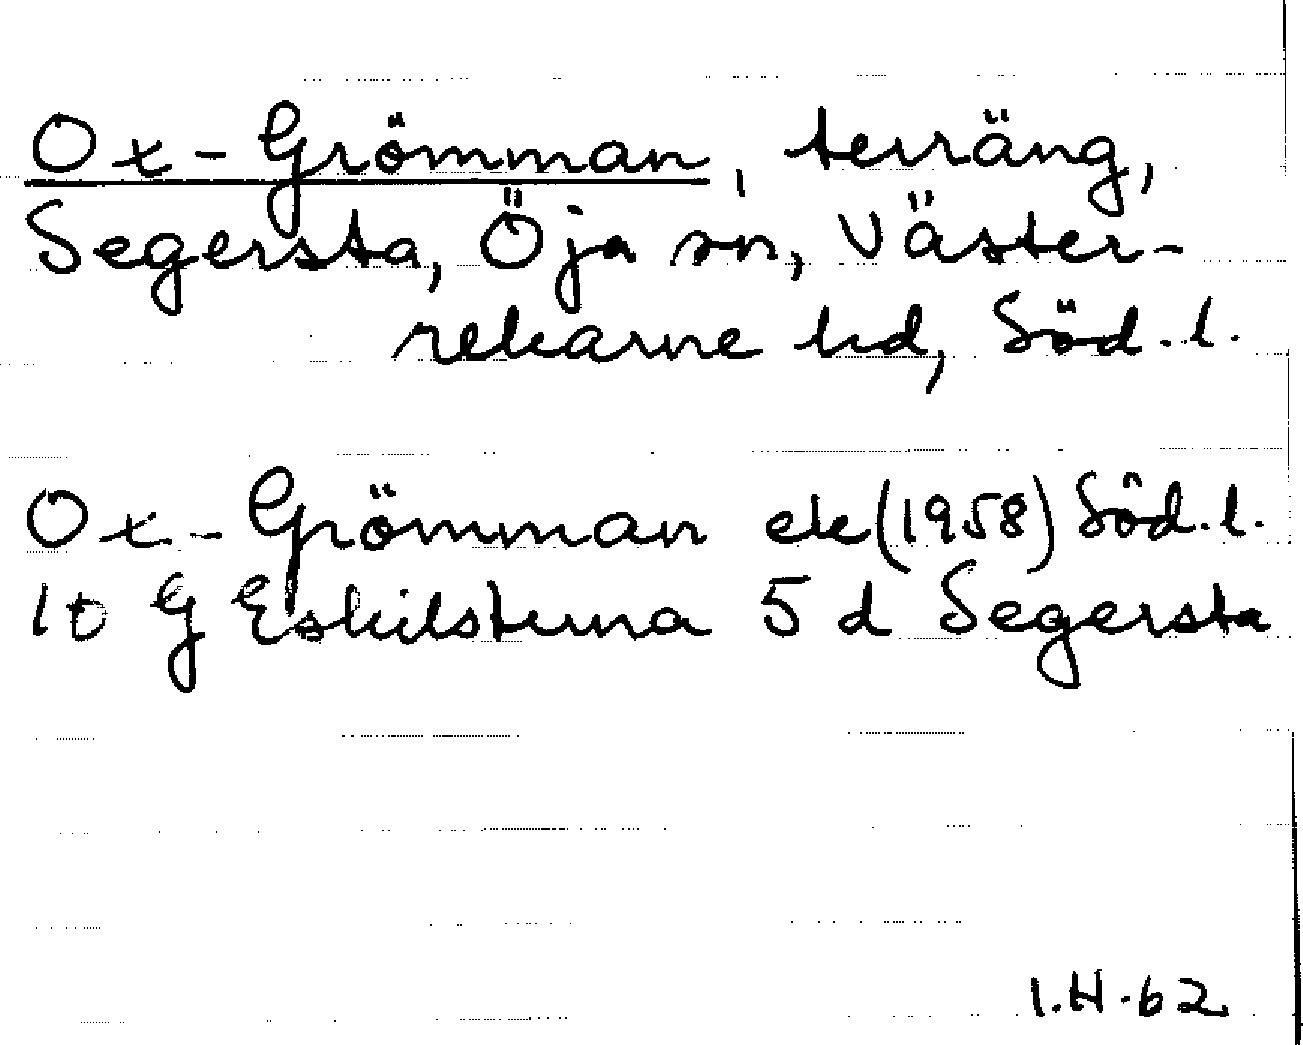 Ox-Grömman, terräng,
Segersta, Öja sn, Väster-
rekarne hd, Söd.l.
Ox-Grömman ek (1958) Söd.l.
10 G Eskilstuna 5 d Segersta
I.H.62